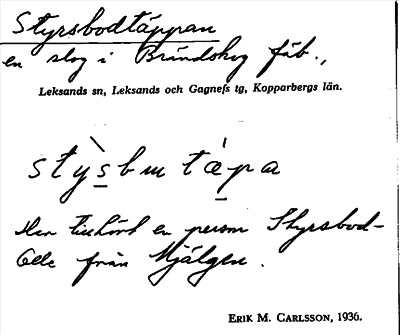 Styrsbodtäppan
en slog i Brändskog fäb.,
Leksands sn, Leksands och Gagnefs tg, Kopparbergs län.
stỳsbɯ tæ̀pa
Har tillhört en person Styrsbod-
Olle från Mjälgen.
ERIK M. CARLSSON, 1936.